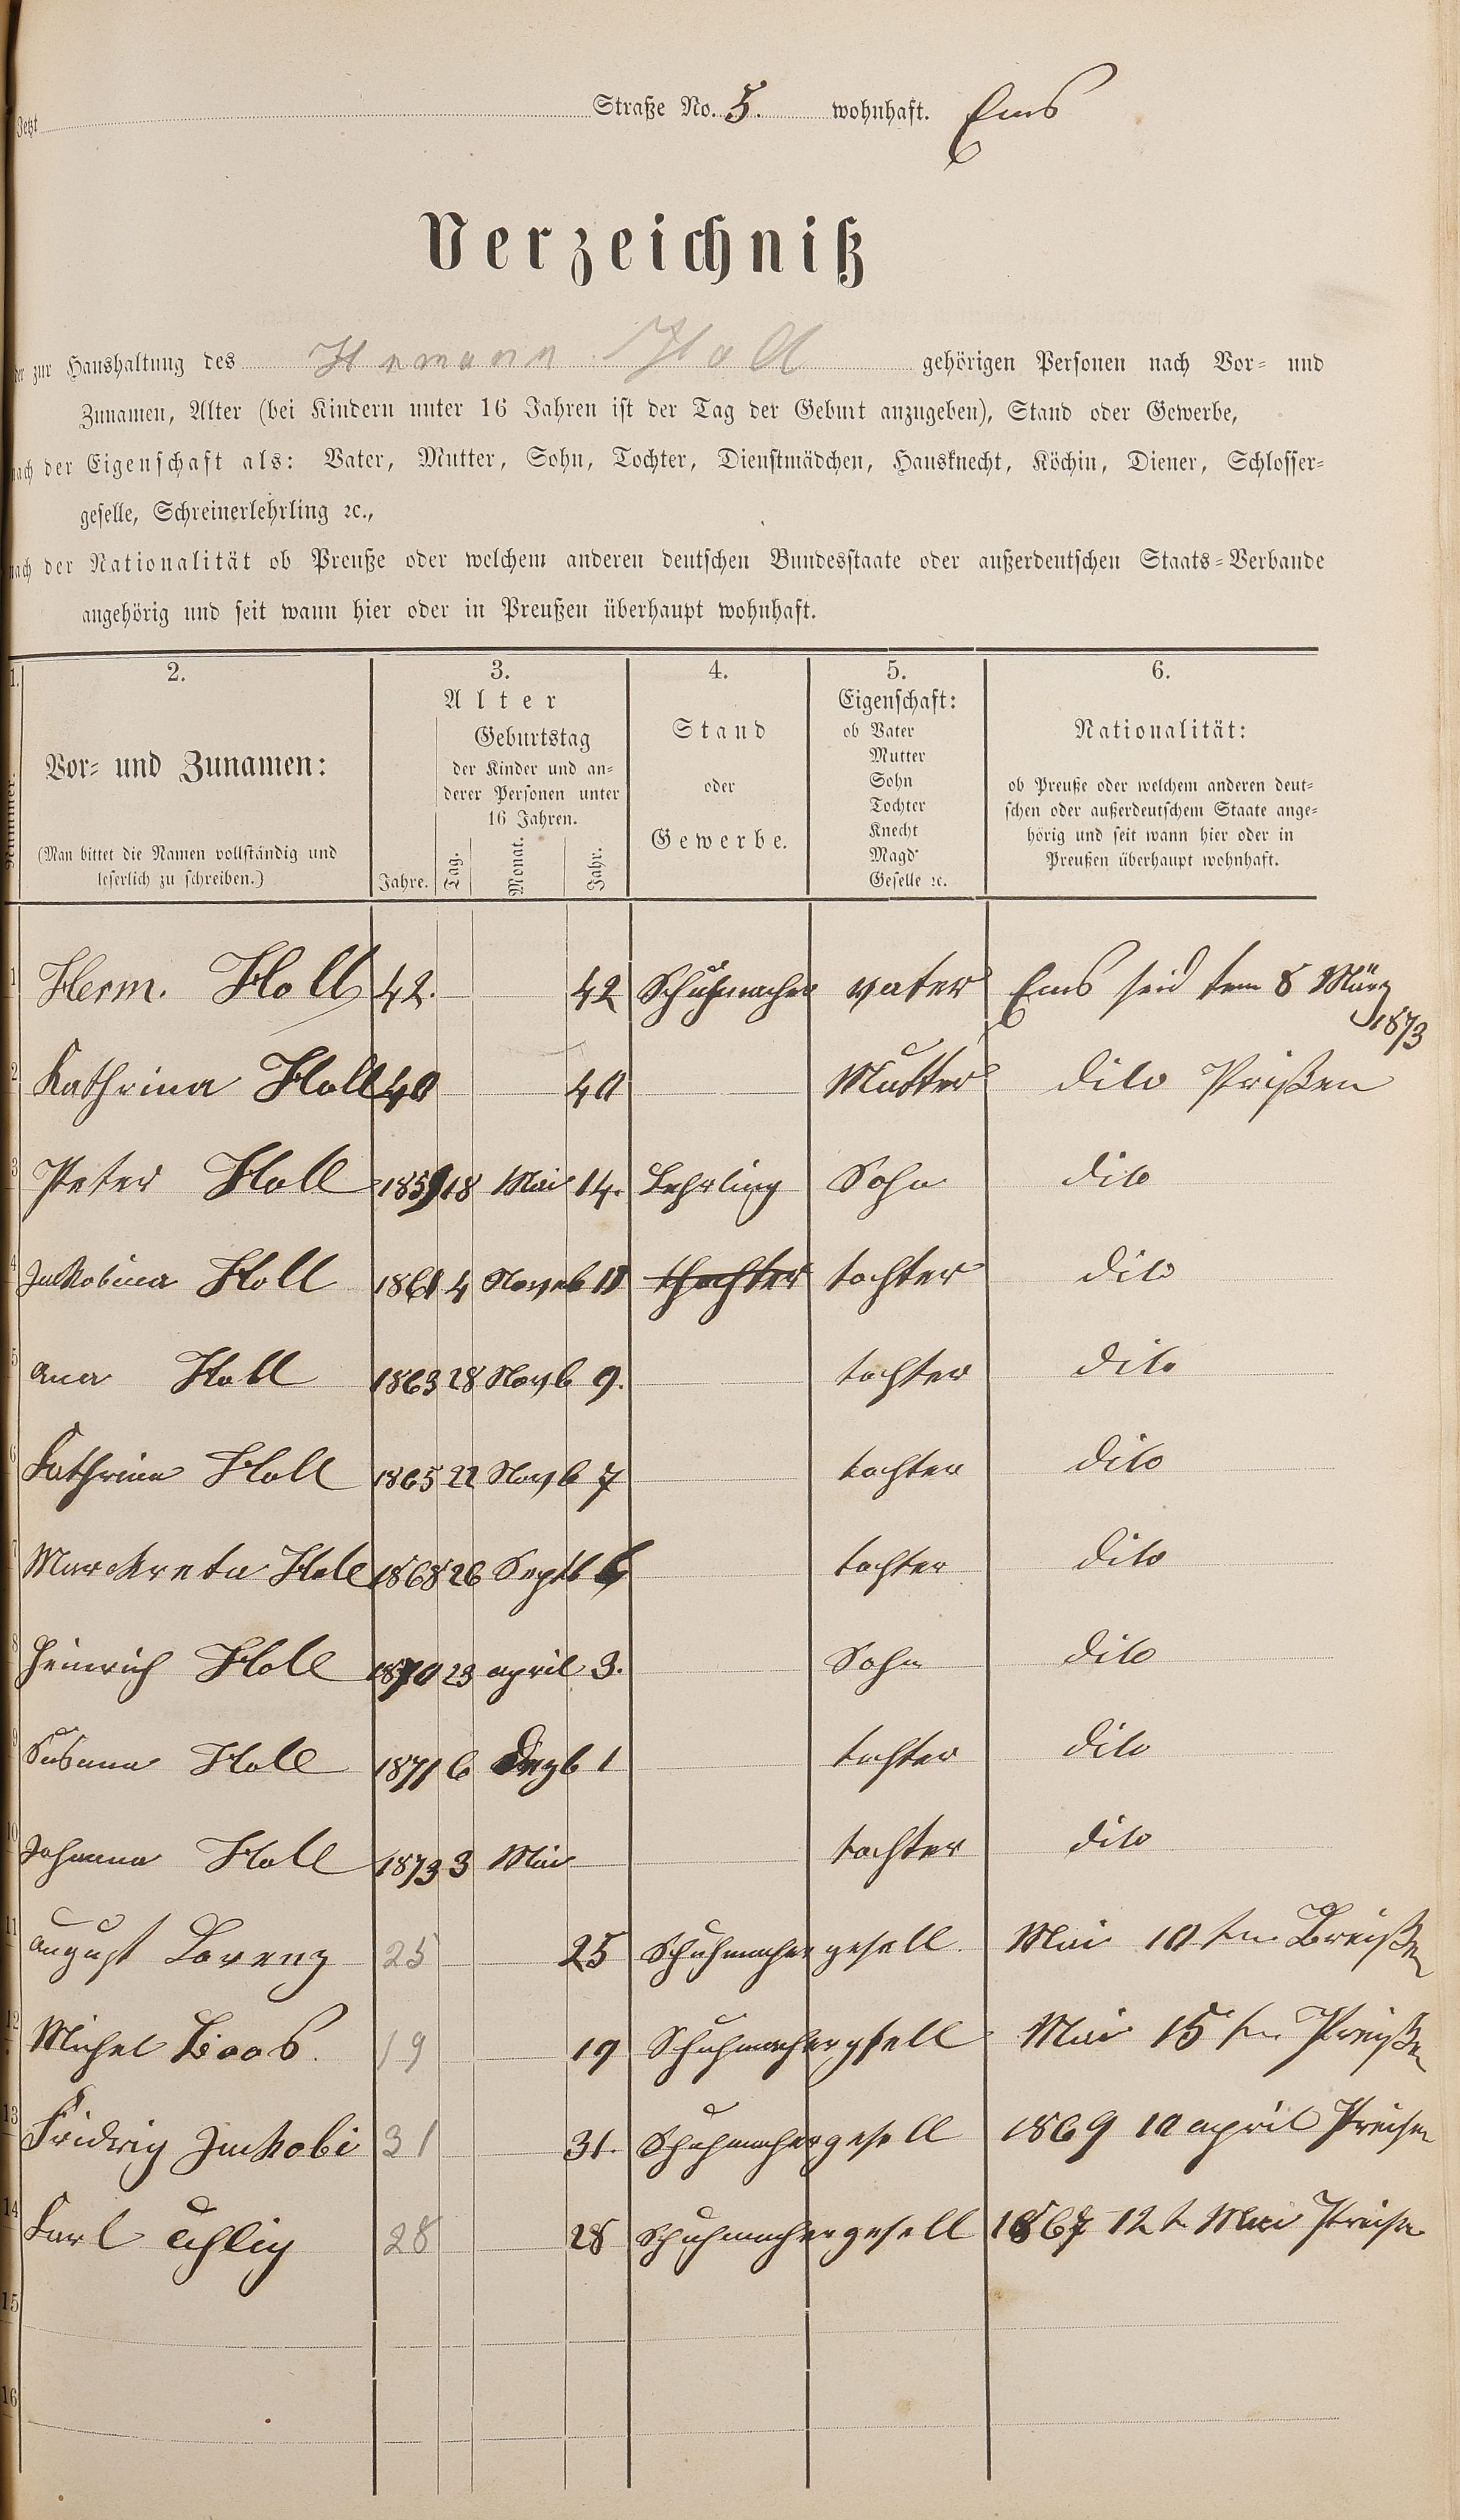 Jetzt Straße No. 5. wohnhaft. Ems
Verzeichniß
der zur Haushaltung des Hermann Holl gehörigen Personen nach Vor- und
Zunamen, Alter (bei Kindern unter 16 Jahren ist der Tag der Geburt anzugeben), Stand oder Gewerbe,
nach der Eigenschaft als: Vater, Mutter, Sohn, Tochter, Dienstmädchen, Hausknecht, Köchin, Diener, Schlosser-
geselle, Schreinerlehrling ꝛc.,
nach der Nationalität ob Preuße oder welchem anderen deutschen Bundesstaate oder außerdeutschen Staats-Verbande
angehörig und seit wann hier oder in Preußen überhaupt wohnhaft.
1. 2. 3. 4. 5. 6.
Nummer. Vor- und Zunamen: (Man bittet die Namen vollständig und leserlich zu schreiben.)
Alter
Jahre. Geburtstag der Kinder und an-
derer Personen unter
16 Jahren.
Tag. Monat. Jahr.
Stand
oder
Gewerbe.
Eigenschaft:
ob Vater
Mutter
Sohn
Tochter
Knecht
Magd
Geselle ꝛc.
Nationalität:
ob Preuße oder welchem anderen deut-
schen oder außerdeutschem Staate ange-
hörig und seit wann hier oder in
Preußen überhaupt wohnhaft.
1 Herm. Holl 42. 42 Schuhmacher vater Ems seid 8 März 1873
2 Kathrina Holl 40 40 Mutter dito Prißen
3 Peter Holl 1859 18 Mai 14. Lehrling Sohn dito
4 Jakobina Holl 1861 4 Noveb 11 thochter tochter dito
5 ana Holl 1863 28 Novb 9. tochter dito
6 Kathrina Holl 1865 22 Novb 7 tochter dito
7 Marckreta Holl 1868 26 Septb tochter dito
8 Heinrich Holl 1870 23 april 3. Sohn dito
9 Susana Holl 1871 6 Dezb 1 tochter dito
10 Johanna Holl 1873 3 Mai tochter dito
11 august Lorenz 25 25 Schuhmacher gesell. Mai 10 ten Breißen
12 Michel Boos. 19 19 Schuhmachergsell Mai 15 ten Preißen
13 Fridrig Jackobi 31 31. Schuhmachergesell 1869 10 april Preisen
14 Karl Uhlig 28 28 Schuhmachergesell 1867 12 t Mai Preise
15
16